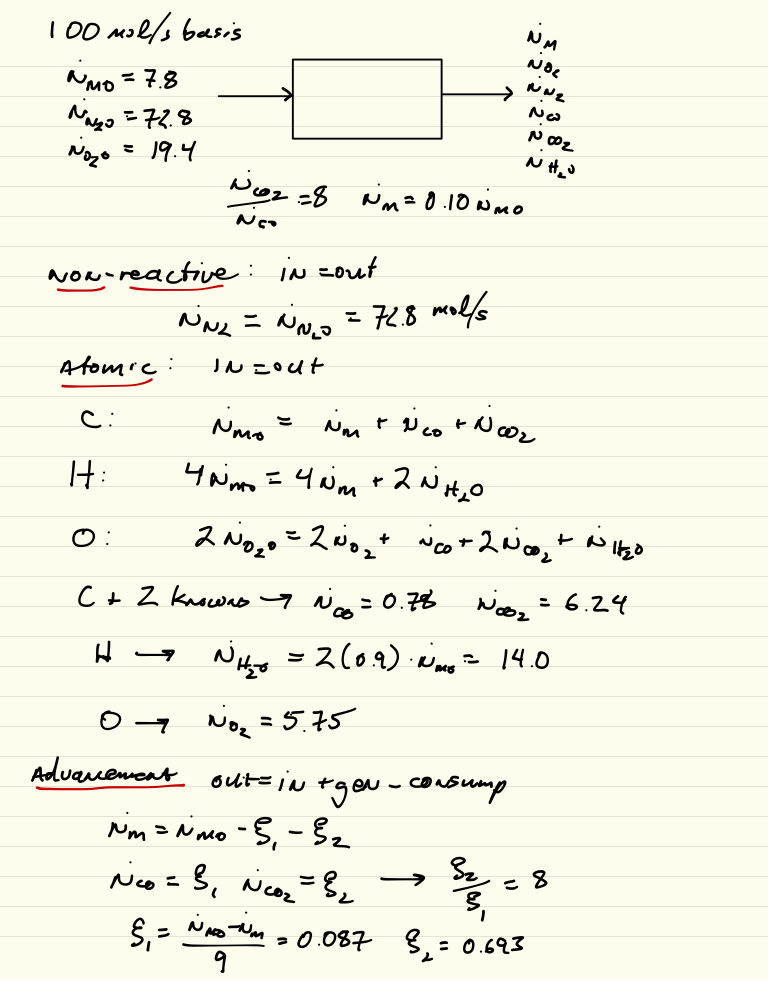 100 mol/s basis
ṅ_M0 = 7.8
ṅ_N₂0 = 72.8
ṅ_O₂0 = 19.4
ṅ_M
ṅ_O₂
ṅ_N₂
ṅ_CO
ṅ_CO₂
ṅ_H₂O
ṅ_CO₂/ṅ_CO = 8 ṅ_M = 0.10 ṅ_M0
Non-reactive: in = out
ṅ_N2 = ṅ_N₂0 = 72.8 mol/s
Atomic: in = out
C: ṅ_M0 = ṅ_M + ṅ_CO + ṅ_CO₂
H: 4ṅ_M0 = 4ṅ_M + 2ṅ_H₂O
O: 2ṅ_O₂0 = 2ṅ_O₂ + ṅ_CO + 2ṅ_CO₂ + ṅ_H₂O
C + 2 knowns → ṅ_CO = 0.78 ṅ_CO₂ = 6.24
H → ṅ_H₂O = 2(0.9)·ṅ_M0 = 14.0
O → ṅ_O₂ = 5.75
Advancement out = in + gen - consump
ṅ_M = ṅ_M0 - ξ₁ - ξ₂
ṅ_CO = ξ₁ ṅ_CO₂ = ξ₂ → ξ₂/ξ₁ = 8
ξ₁ = (ṅ_M0 - ṅ_M)/9 = 0.087 ξ₂ = 0.693